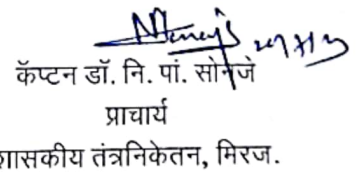 कॅप्टन डॉ. नि. पां. सोनजे
प्राचार्य
शासकीय तंत्रनिकेतन, मिरज.